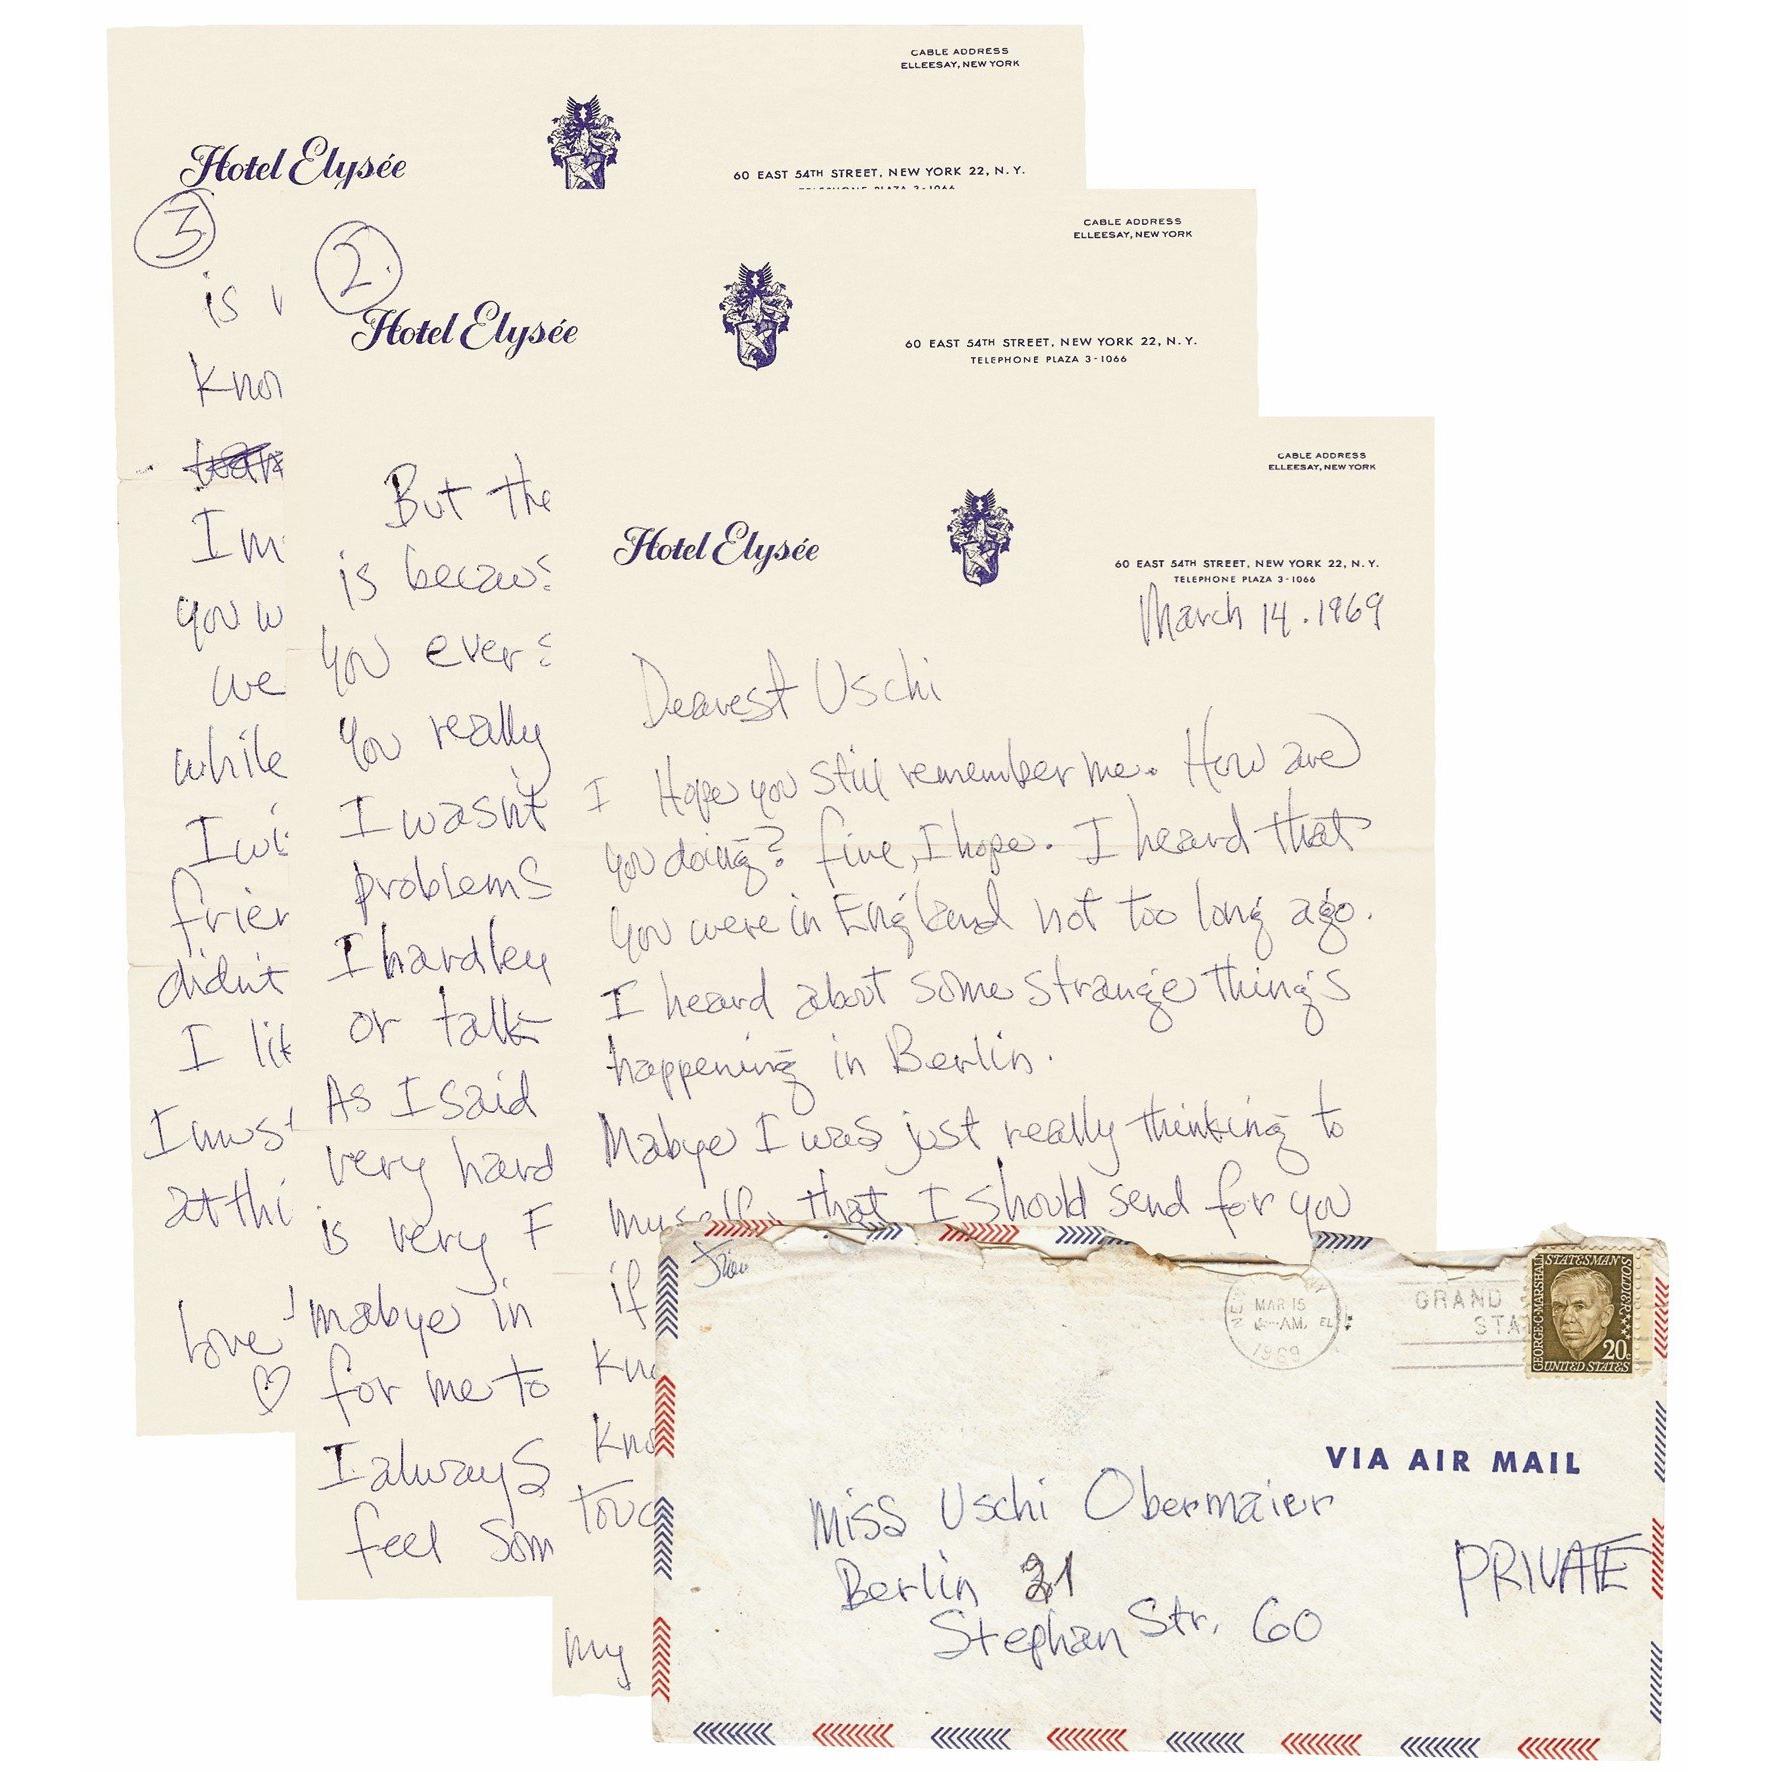 CABLE ADDRESS
ELLEESAY, NEW YORK
Hotel Elysée
60 EAST 54TH STREET, NEW YORK 22, N.Y.
TELEPHONE PLAZA 3-1066
3
is
I
you w
we
while
didn't
I
love
CABLE ADDRESS
ELLEESAY, NEW YORK
2.
Hotel Elysée
60 EAST 54TH STREET, NEW YORK 22, N.Y.
TELEPHONE PLAZA 3-1066
But the
is
you ever
you really
I wasn't
problems
I hardley
or talk
As I said
very hard
is very F
mabye in
for me to
I always
feel som
CABLE ADDRESS
ELLEESAY, NEW YORK
Hotel Elysée
60 EAST 54TH STREET, NEW YORK 22, N.Y.
TELEPHONE PLAZA 3-1066
March 14. 1969
Dearest Uschi
I Hope you still remember me. How are
you doing? fine, I hope. I heard that
you were in England not too long ago.
I heard about some strange things
happening in Berlin.
Mabye I was just really thinking to
myself, that I should send for you
if
my
NEW
MAR 15
AM
1969
GRAND
STA
GEORGE C. MARSHALL
STATESMAN
SOLDIER
20c
UNITED STATES
VIA AIR MAIL
Miss Uschi Obermaier
Berlin 21
Stephan Str. 60
PRIVATE